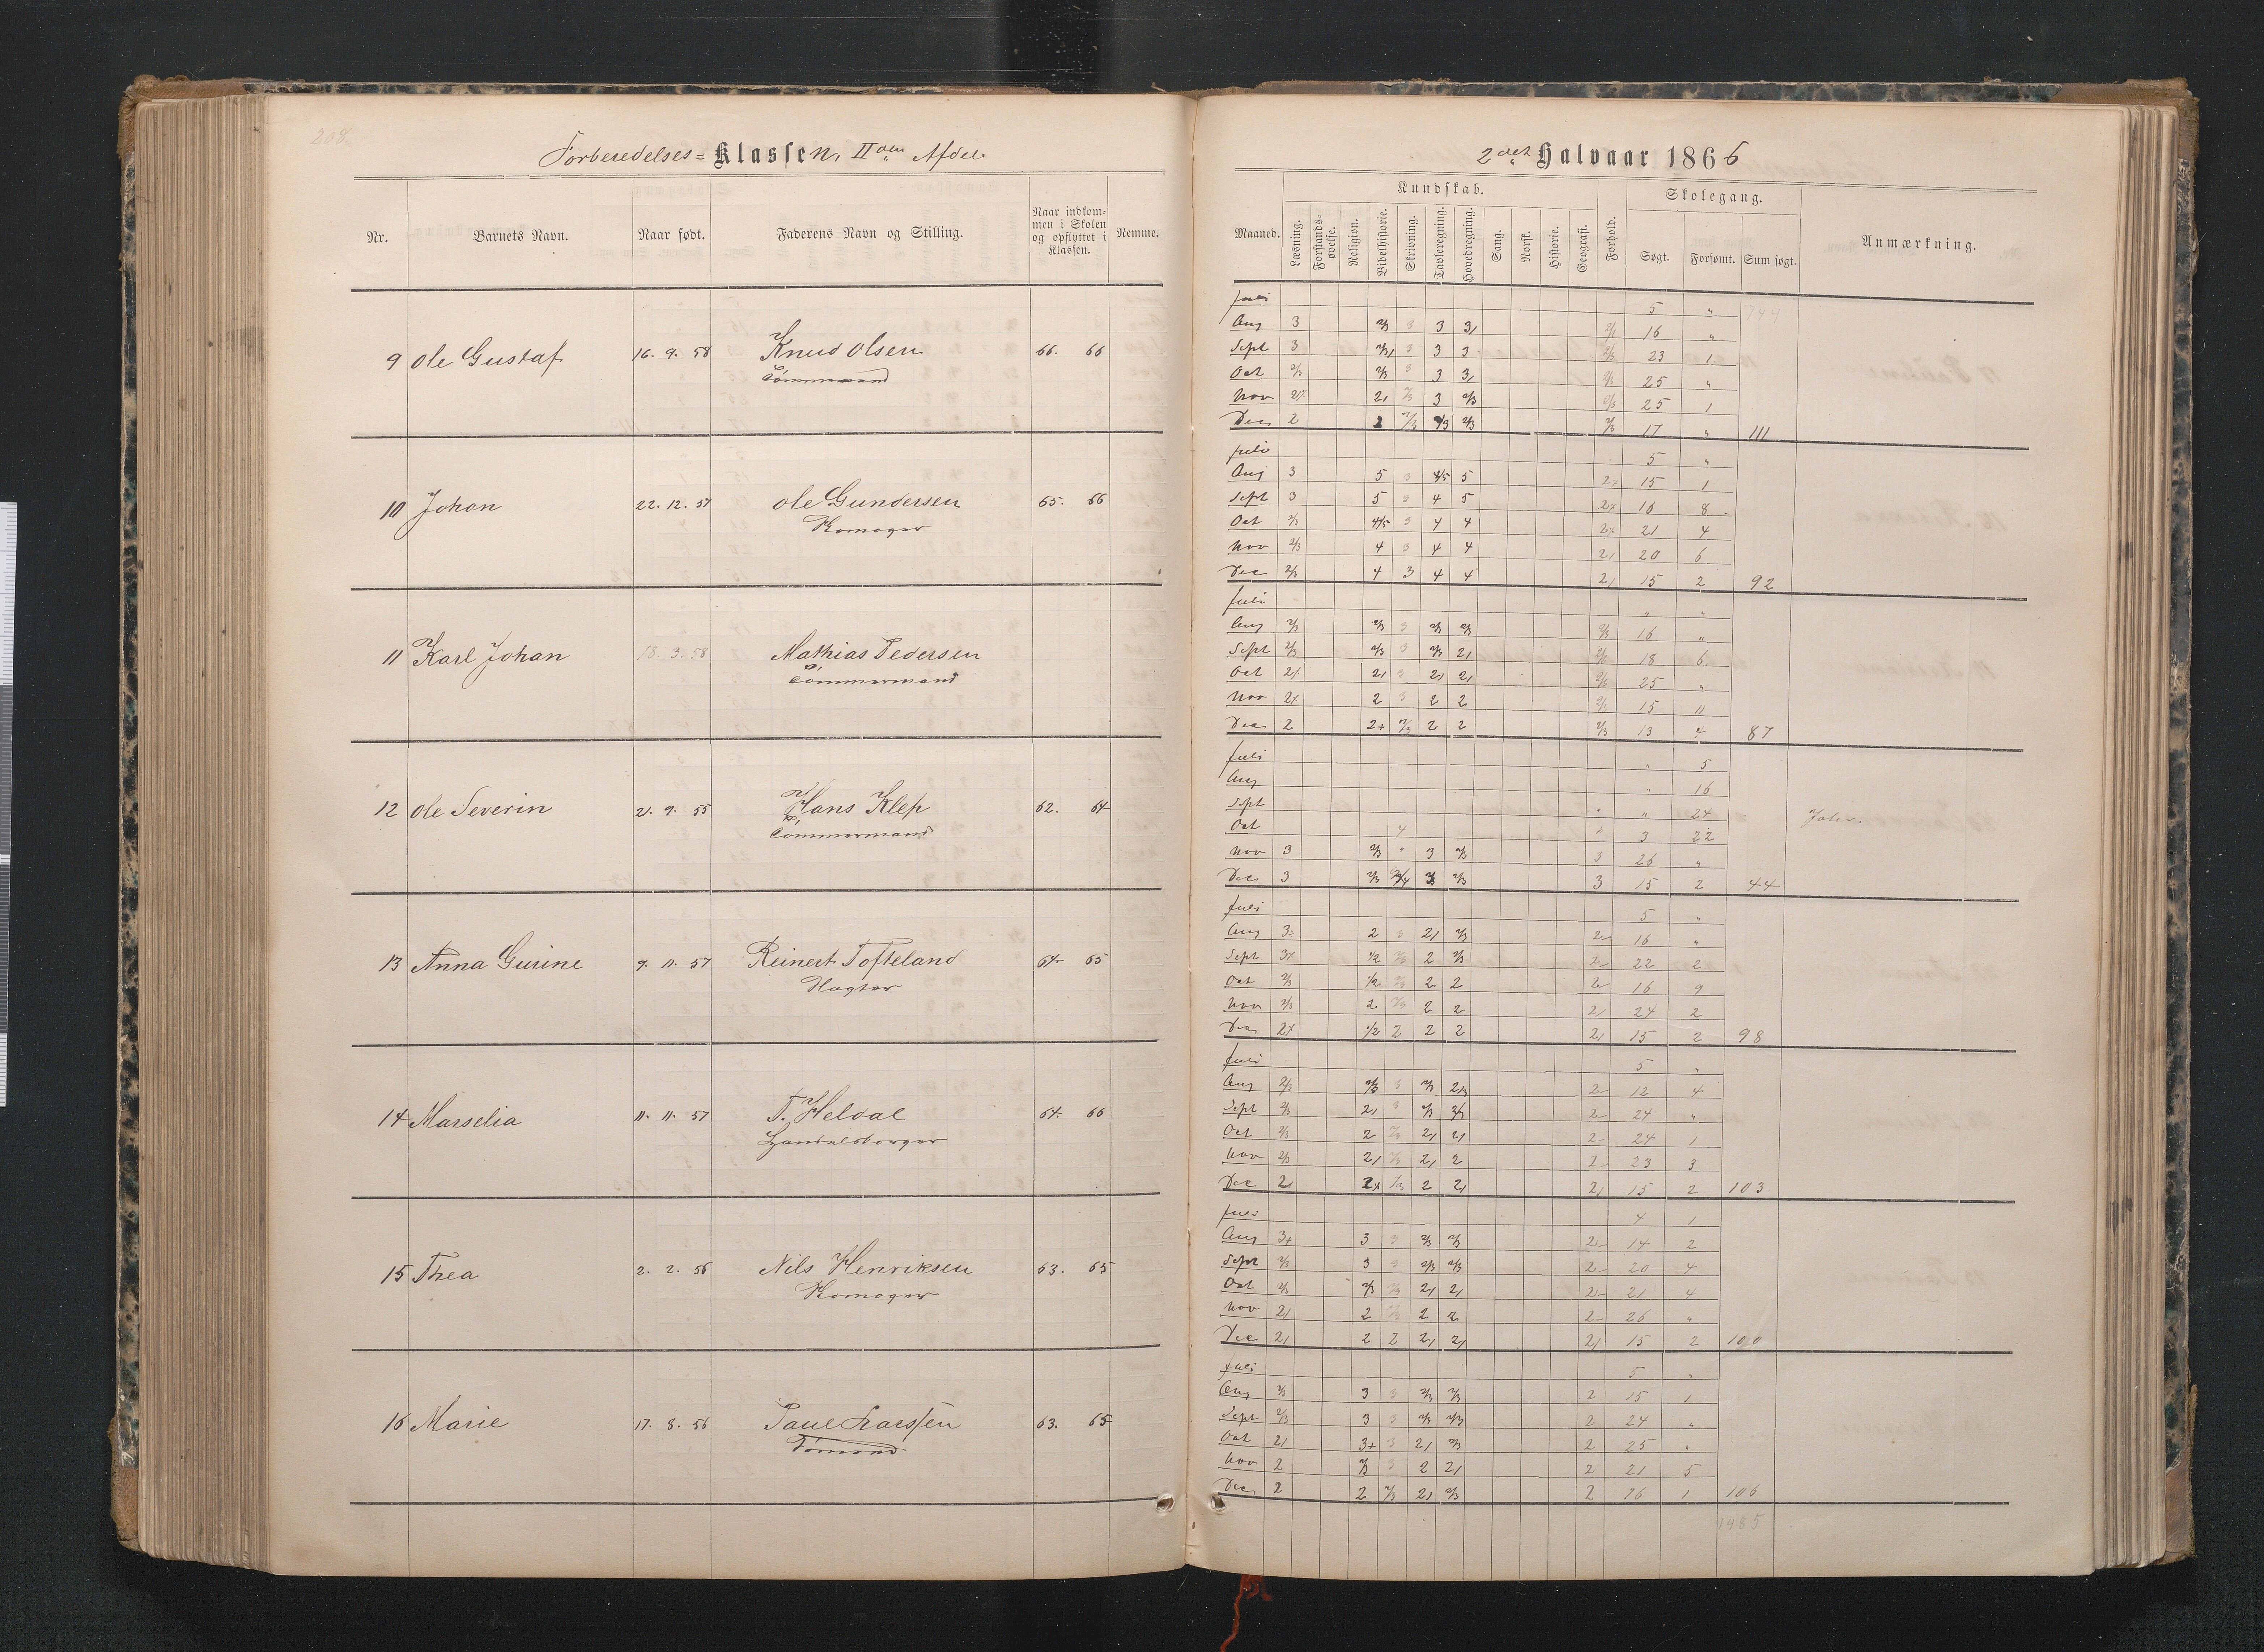 208
Forberedelses= Klassen, II den Afdel.
Nr. Barnets Navn. Naar født. Faderens Navn og Stilling. Naar indkommen i Skolen og opflyttet i Klassen. Nemme.
9 Ole Gustaf 16. 9. 58 Knud Olsen 66. 66
Tømmermand
10 Johan 22. 12. 57 Ole Gundersen 65. 66
11 Karl Johan 18. 3. 58 Mathias Pedersen
Tømmermand
12 Ole Severin 21. 9. 55 Hans Klep 62. 64
Tømmermand
13 Anna Gurine 9. 11. 57 Reinert Tofteland 64 65
14 Marselia 11. 11. 57 T. Heldal 64. 66
Handelsborger
15 Thea 2. 2. 56 Nils Henriksen 63. 65
16 Marie 17. 8. 56 Paul Larssen 63. 65
2det Halvaar 1866
Kundskab. Skolegang.
Maaned. Læsning. Forstandsøvelse. Religion. Bibelhistorie. Skrivning. Tavleregning. Hovedregning. Sang. Norsk. Historie. Geografi. Forhold. Søgt. Forsømt. Sum søgt. Anmærkning.
Juli 5 " 744
Aug 3 2/3 3 3 3, 16 "
Sept 3 3 3 3 23 1
Oct 2/3 2/3 3 3 3, 25 "
Nov 2, 3 2/3 25 1
Dec 2 2 2/3 2/3 2/3 17 " 111
Juli 5 "
Aug 3 5 3 4/5 5 15 1
Sept 3 5 3 4 5 16 8
Oct 2/3 4/5 3 4 4 21 4
Nov 2/3 4 3 4 4 2, 20 6
Dec 2/3 4 3 4 4 2, 15 2 92
Juli " "
Aug 2/3 2/3 3 2/3 2/3 16 "
Sept 2/3 2/3 3 2/3 2, 18 6
Oct 2, 3 2, 2, 25 "
Nov 2+ 2 3 2 2 15 11
Dec 2 2+ 2/3 2 2 2/3 13 4 87
Juli " 5
Aug " 16
Sept " " 24
Oct 4 " 3 22
Nov 3 2/3 " 3 2/3 3 26 "
Dec 3 2/3 2/3 3 15 2 44
Juli 5 "
Aug 2 3 2, 2/3 2- 16 "
Sept 3+ 1/2 2/3 2 2/3 2- 22 2
Oct 2/3 1/2 2/3 2 2 2- 16 9
Nov 2/3 2 2/3 2 2 2, 24 2
Dec 2+ 1/2 2 2 2 2, 15 2 98
Juli 5 "
Aug 2/3 2/3 3 2/3 2- 12 4
Sept 2/3 2, 3 2/3 2- 24 "
Oct 2/3 2 2/3 2, 2, 2- 24 1
Nov 2/3 2, 2/3 2, 2 2- 23 3
Dec 2, 2 2, 2, 15 2 103
Juli 4 1
Aug 3+ 3 3 2/3 2/3 2- 14 2
Sept 2/3 3 3 2/3 2/3 2- 20 4
Oct 2/3 2/3 2/3 2, 2, 2- 21 4
Nov 2, 2 2/3 2 2 2- 26 "
Dec 2, 2 2 2, 2, 2, 15 2 100
Juli 5 "
Aug 2/3 3 3 2/3 2/3 2 15 1
Sept 2/3 3 3 2/3 2/3 2 24 "
Oct 2, 3+ 3 2, 2/3 2 25 "
Nov 2 2/3 3 2 2, 2 21 5
Dec 2 2 2/3 2, 2/3 2 16 1 106
1485